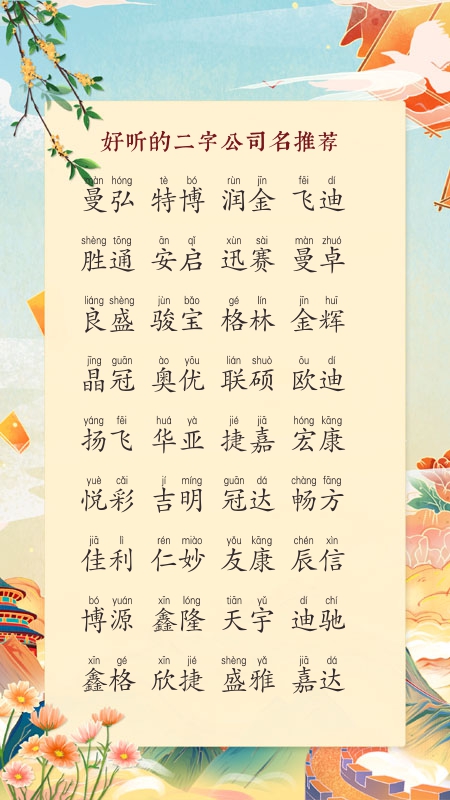 好听的二字公司名推荐
màn hóng tè bó rùn jīn fēi dí
曼弘 特博 润金 飞迪
shèng tōng ān qǐ xùn sài màn zhuó
胜通 安启 迅赛 曼卓
liáng shèng jùn bǎo gé lín jīn huī
良盛 骏宝 格林 金辉
jīng guān ào yōu lián shuò ōu dí
晶冠 奥优 联硕 欧迪
yáng fēi huá yà jié jiā hóng kāng
扬飞 华亚 捷嘉 宏康
yuè cǎi jí míng guān dá chàng fāng
悦彩 吉明 冠达 畅方
jiā lì rén miào yǒu kāng chén xìn
佳利 仁妙 友康 辰信
bó yuán xīn lóng tiān yǔ dí chí
博源 鑫隆 天宇 迪驰
xīn gé xīn jié shèng yǎ jiā dá
鑫格 欣捷 盛雅 嘉达